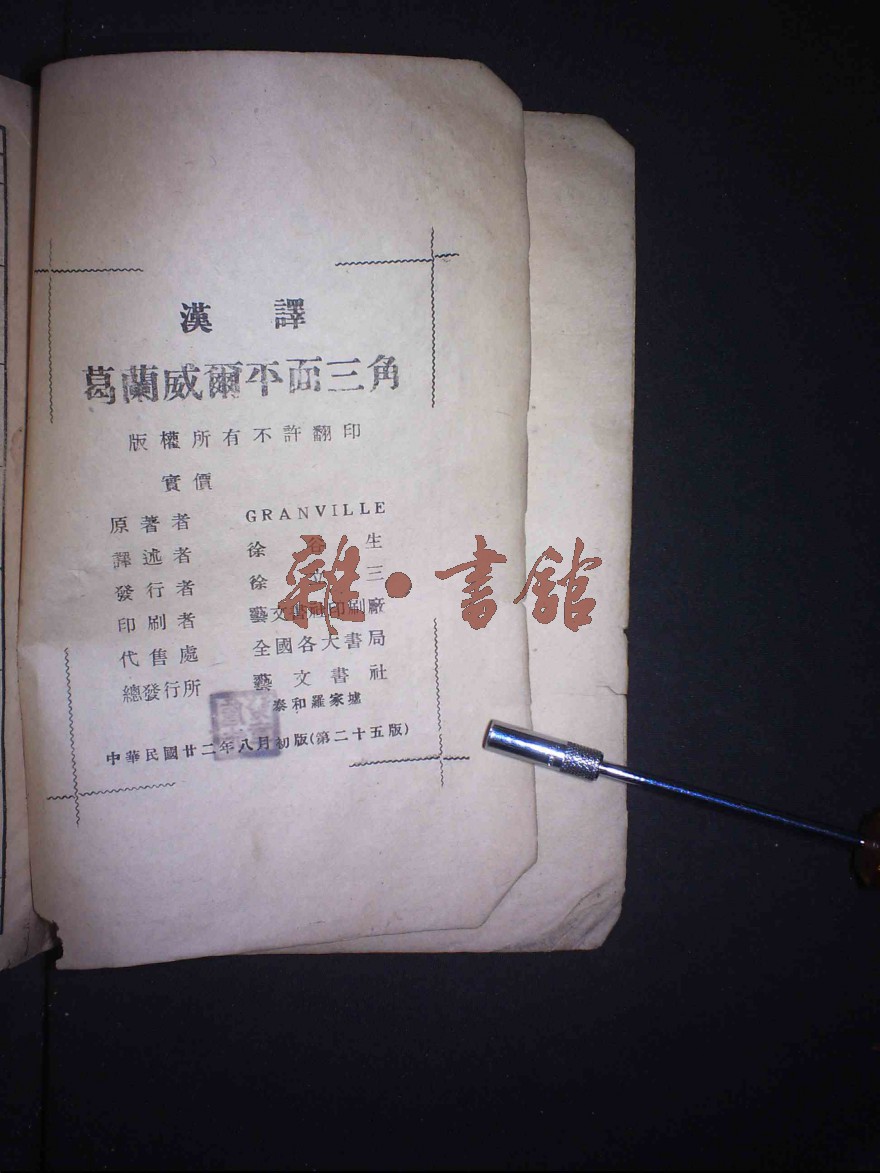 漢譯
葛蘭威爾平面三角
版權所有不許翻印
實價
原著者 GRANVILLE
譯述者 徐谷生
發行者 徐立三
印刷者 藝文書社印刷廠
代售處 全國各大書局
總發行所 藝文書社
泰和羅家墟
中華民國廿二年八月初版(第二十五版)
雜·書館